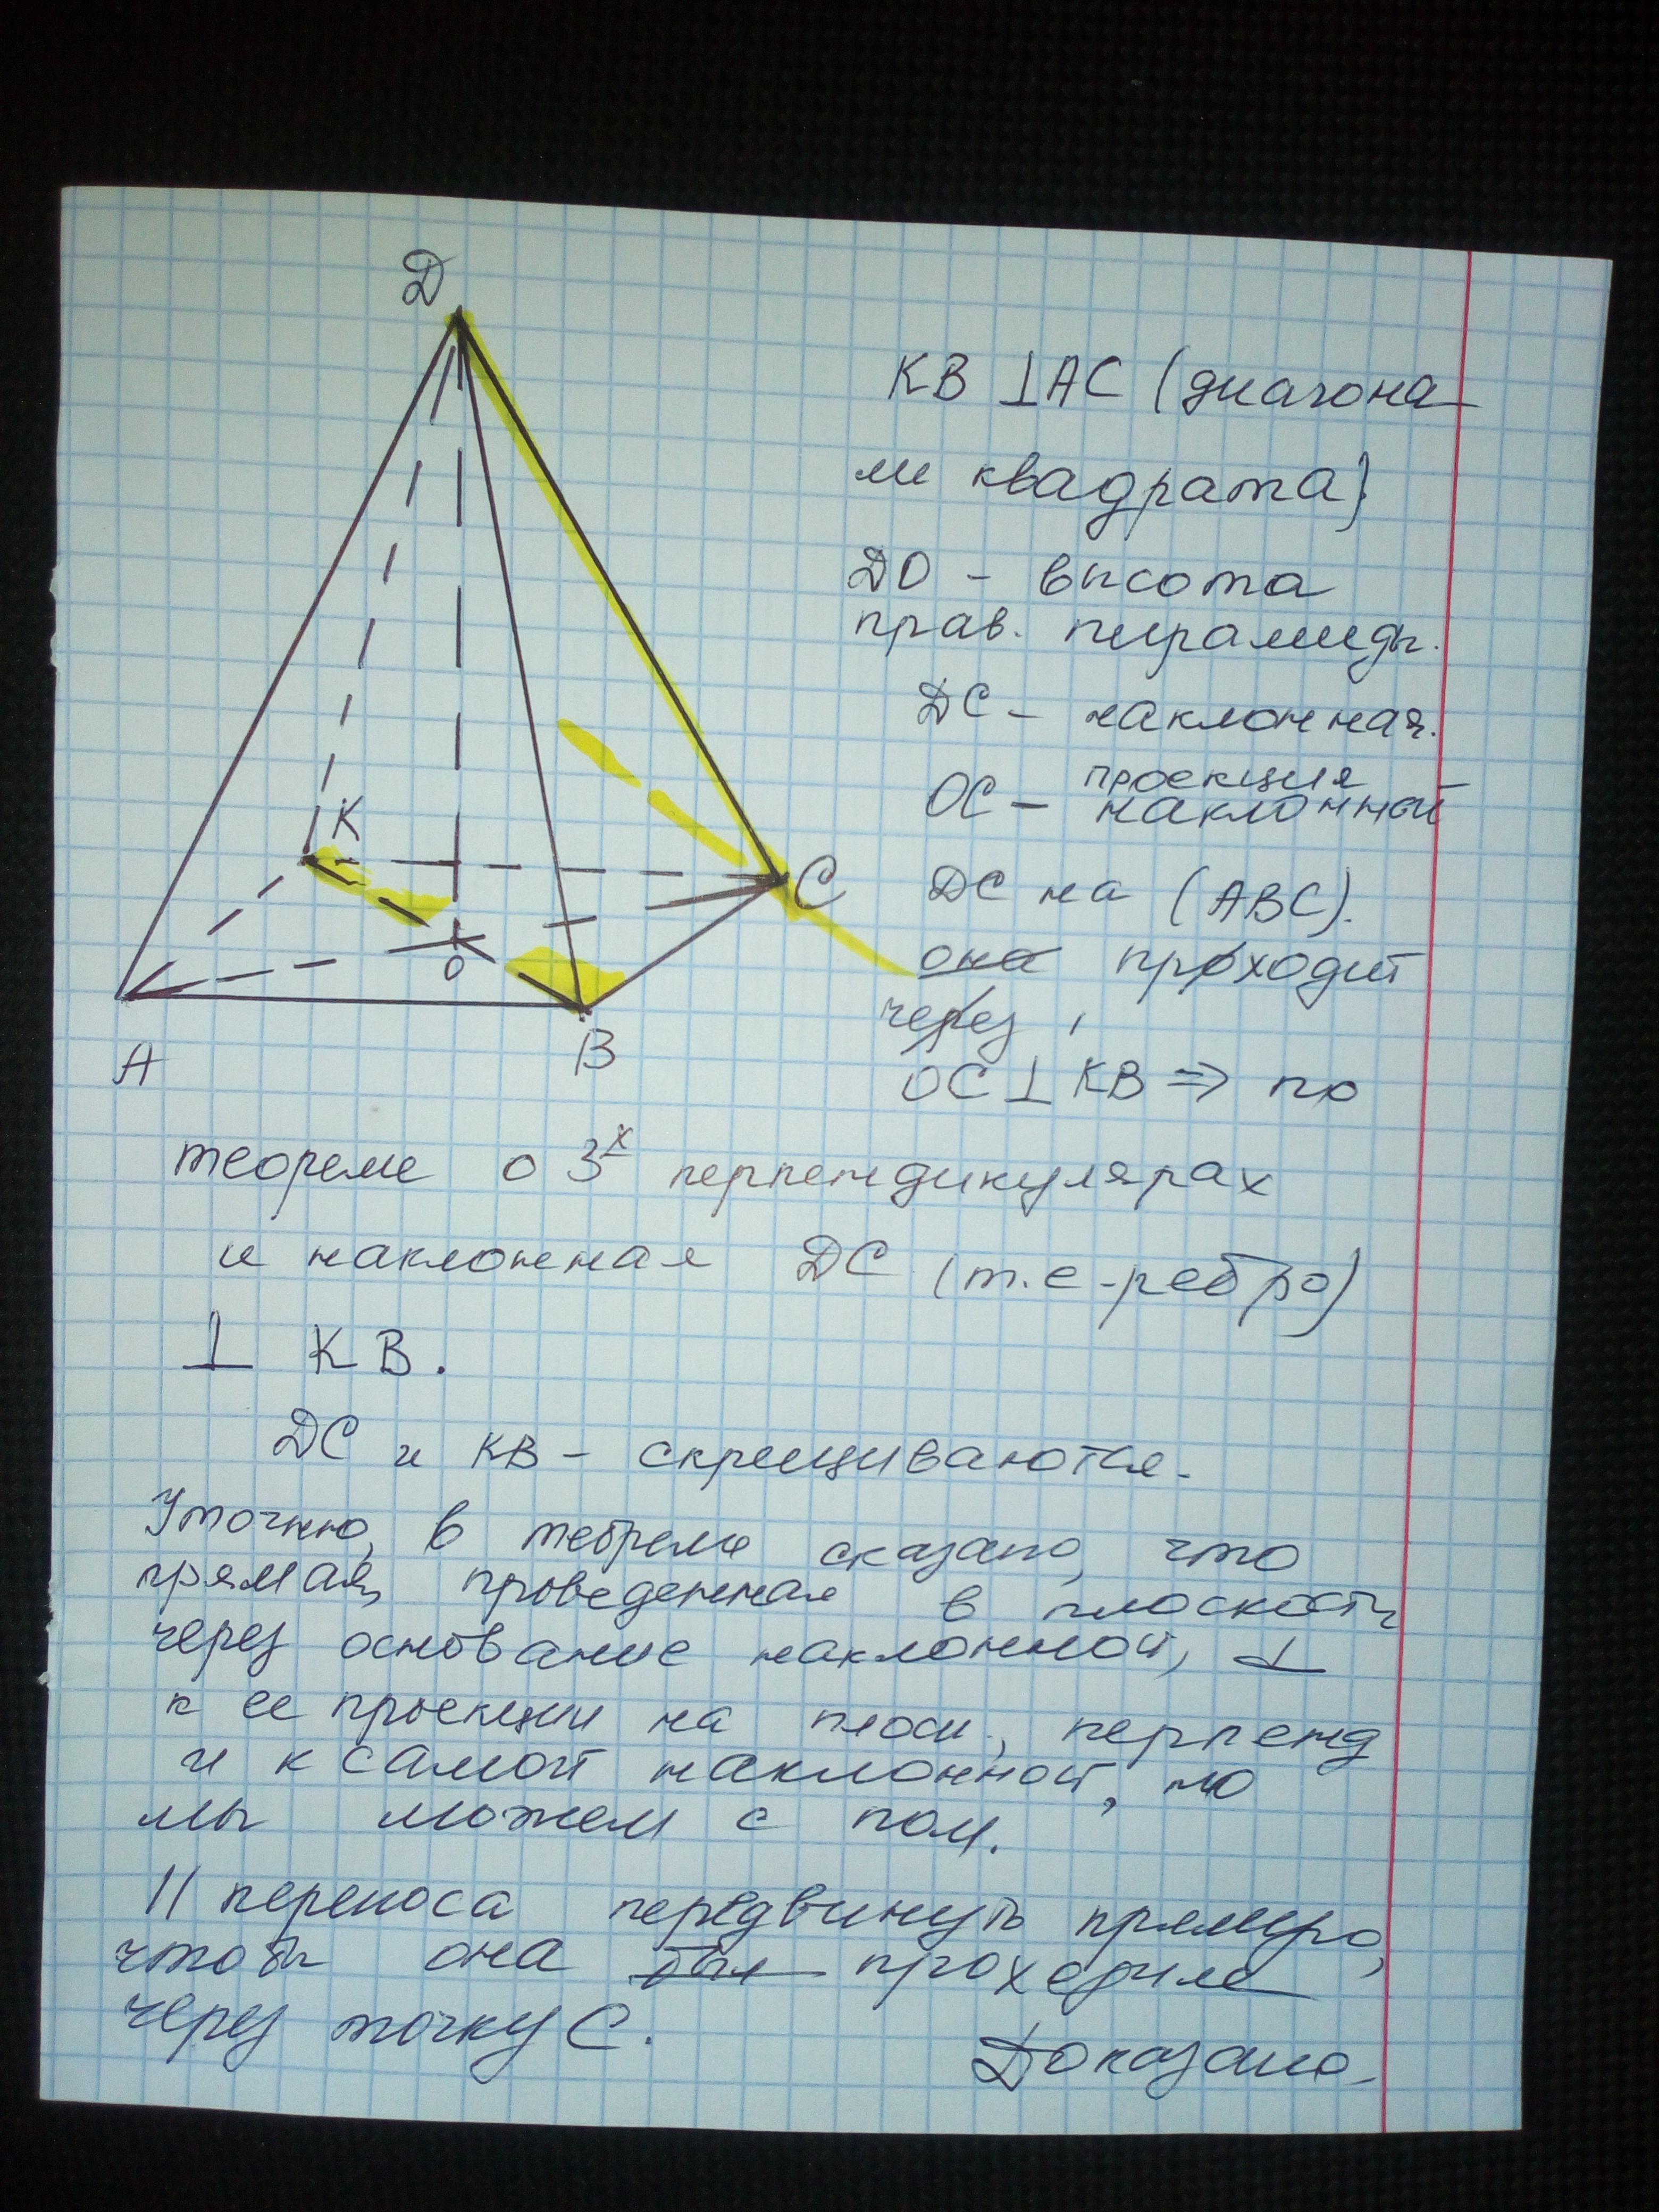 Д
К
С
О
А
В
КВ ⊥ АС (диагона
ли квадрата)
ДО - высота
прав. пирамиды.
ДС - наклонная.
проекция
ОС - наклонной
ДС на (АВС).
она проходит
через ,
ОС ⊥ КВ ⇒ по
теореме о 3х перпендикулярах
и наклонная ДС (т.е-ребро)
⊥ КВ.
ДС и КВ - скрещиваются.
Уточню, в теореме сказано, что
прямая, проведенная в плоскости
через основание наклонной, ⊥
к ее проекции на плоск., перпенд
и к самой наклонной, но
мы можем с пом.
|| переноса передвинуть прямую,
чтобы она был проходила
через точку С.
Доказано.